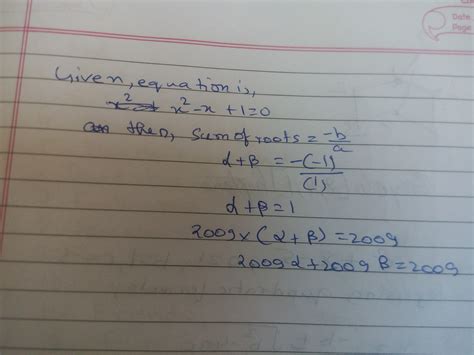 Date
Page
Given, equation is,
x² - x + 1 = 0
then, sum of roots = -b/a
α + β = -(-1)/(1)
α + β = 1
2009 × (α + β) = 2009
2009 α + 2009 β = 2009